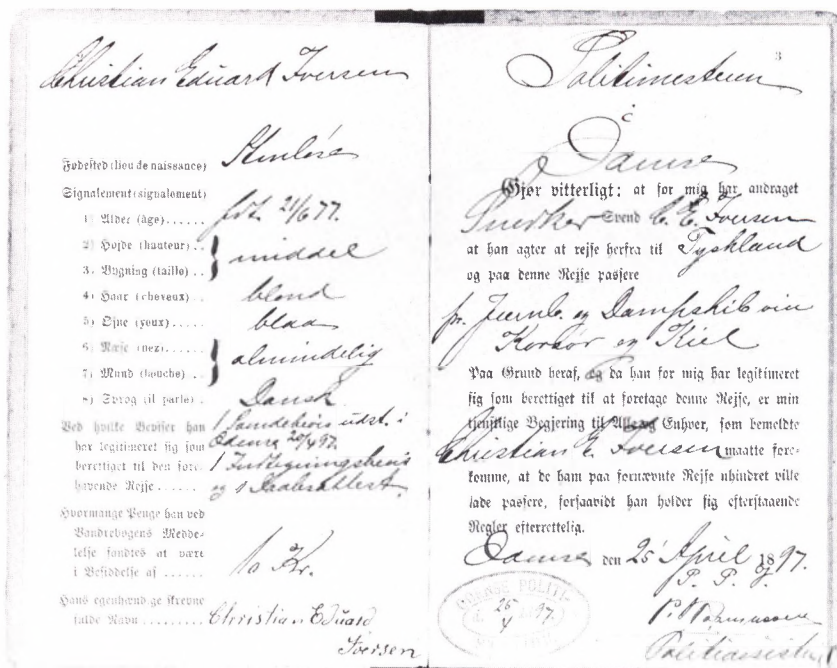 Christian Eduard Iversen
Fødested (lieu de naissance) Stenløse
Signalement (signalement)
1) Alder (âge)...... fdt. 21/6 77.
2) Højde (hauteur)..
3) Bygning (taille)..
middel
4) Haar (cheveux)... blond
5) Øjne (yeux)..... blaa
6) Næse (nez)......
7) Mund (bouche)...
almindelig
8) Sprog (il parle). Dansk.
Ved hvilke Beviser han 1 Svendebrev udst. i
har legitimeret sig som Odense 20/4 97.
berettiget til den fore- 1
havende Rejse ...... og 1 Daabsattest.
Hvormange Penge han ved
Vandrebogens Medde-
lelse fandtes at være
i Besiddelse af ...... 10 Kr.
Hans egenhændige skrevne
fulde Navn ......... Christian Eduard
Iversen
3
Politimesteren
i
Odense
Gjør vitterligt: at for mig har andraget
Snedker Svend C. E. Iversen
at han agter at rejse herfra til Tyskland
og paa denne Rejse passere
pr. Jernb. og Dampskib via
Korsør og Kiel
Paa Grund heraf, og da han for mig har legitimeret
sig som berettiget til at foretage denne Rejse, er min
tjenstlige Begjering til Alle og Enhver, som bemeldte
Christian E. Iversen maatte fore-
komme, at de ham paa fornævnte Rejse uhindret ville
lade passere, forsaavidt han holder sig efterstaaende
Regler efterrettelig.
Odense den 25 April 1897.
P. P. V.
ODENSE POLITI-
25/4 97.
P. Rasmussen
Politiassistent